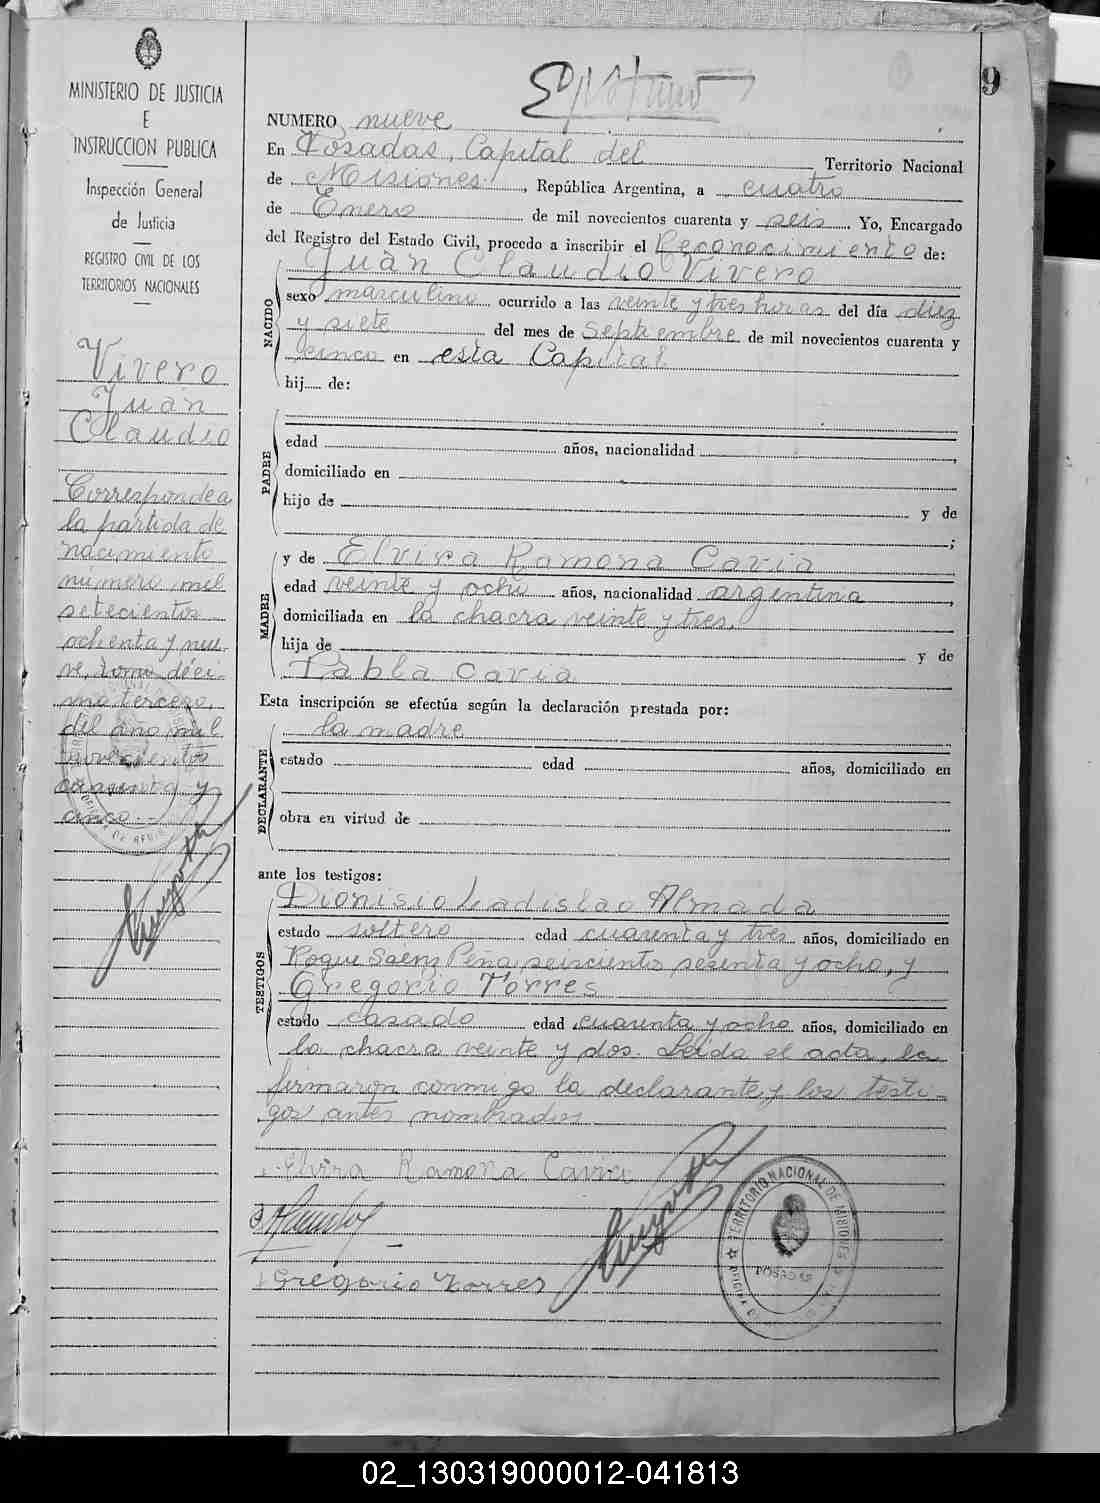 9
MINISTERIO DE JUSTICIA
E
INSTRUCCION PUBLICA
Inspección General
de Justicia
REGISTRO CIVIL DE LOS
TERRITORIOS NACIONALES
Vivero
Juan
Claudio
Corresponde a
la partida de
nacimiento
número mil
setecientos
ochenta y nue-
ve, tomo déci-
mo tercero,
del año mil
novecientos
cuarenta y
cinco.-
NUMERO nueve
En Posadas, Capital del Territorio Nacional
de Misiones, República Argentina, a cuatro
de Enero de mil novecientos cuarenta y seis. Yo, Encargado
del Registro del Estado Civil, procedo a inscribir el Reconocimiento de:
Juan Claudio Vivero
NACIDO
sexo masculino ocurrido a las veinte y tres horas del día diez
y siete del mes de Septiembre de mil novecientos cuarenta y
cinco en esta Capital
hij... de:
PADRE
edad años, nacionalidad ,
domiciliado en
hijo de y de
;
MADRE
y de Elvira Ramona Cavia
edad veinte y ocho años, nacionalidad argentina ,
domiciliada en la chacra veinte y tres,
hija de y de
Pabla Cavia
Esta inscripción se efectúa según la declaración prestada por:
DECLARANTE
la madre
estado edad años, domiciliado en
obra en virtud de
ante los testigos:
TESTIGOS
Dionisio Ladislao Almada
estado soltero edad cuarenta y tres años, domiciliado en
Roque Saénz Peña seiscientos sesenta y ocho, y
Gregorio Torres
estado casado edad cuarenta y ocho años, domiciliado en
la chacra veinte y dos. Leída el acta, la
firmaron conmigo la declarante y los testi-
gos antes nombrados
Elvira Ramona Cavia
Gregorio Torres
TERRITORIO NACIONAL DE MISIONES
POSADAS
02_130319000012-041813